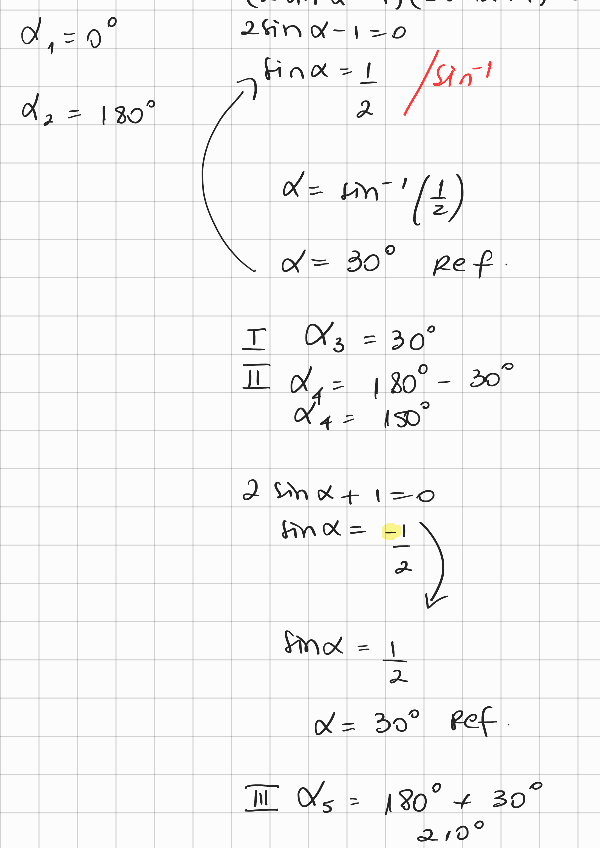 α₁ = 0°
α₂ = 180°
2sin α - 1 = 0
sin α = 1/2 /sin⁻¹
α = sin⁻¹(1/2)
α = 30° Ref.
I α₃ = 30°
II α₄ = 180° - 30°
α₄ = 150°
2 sin α + 1 = 0
sin α = -1/2
sin α = 1/2
α = 30° Ref.
III α₅ = 180° + 30°
210°